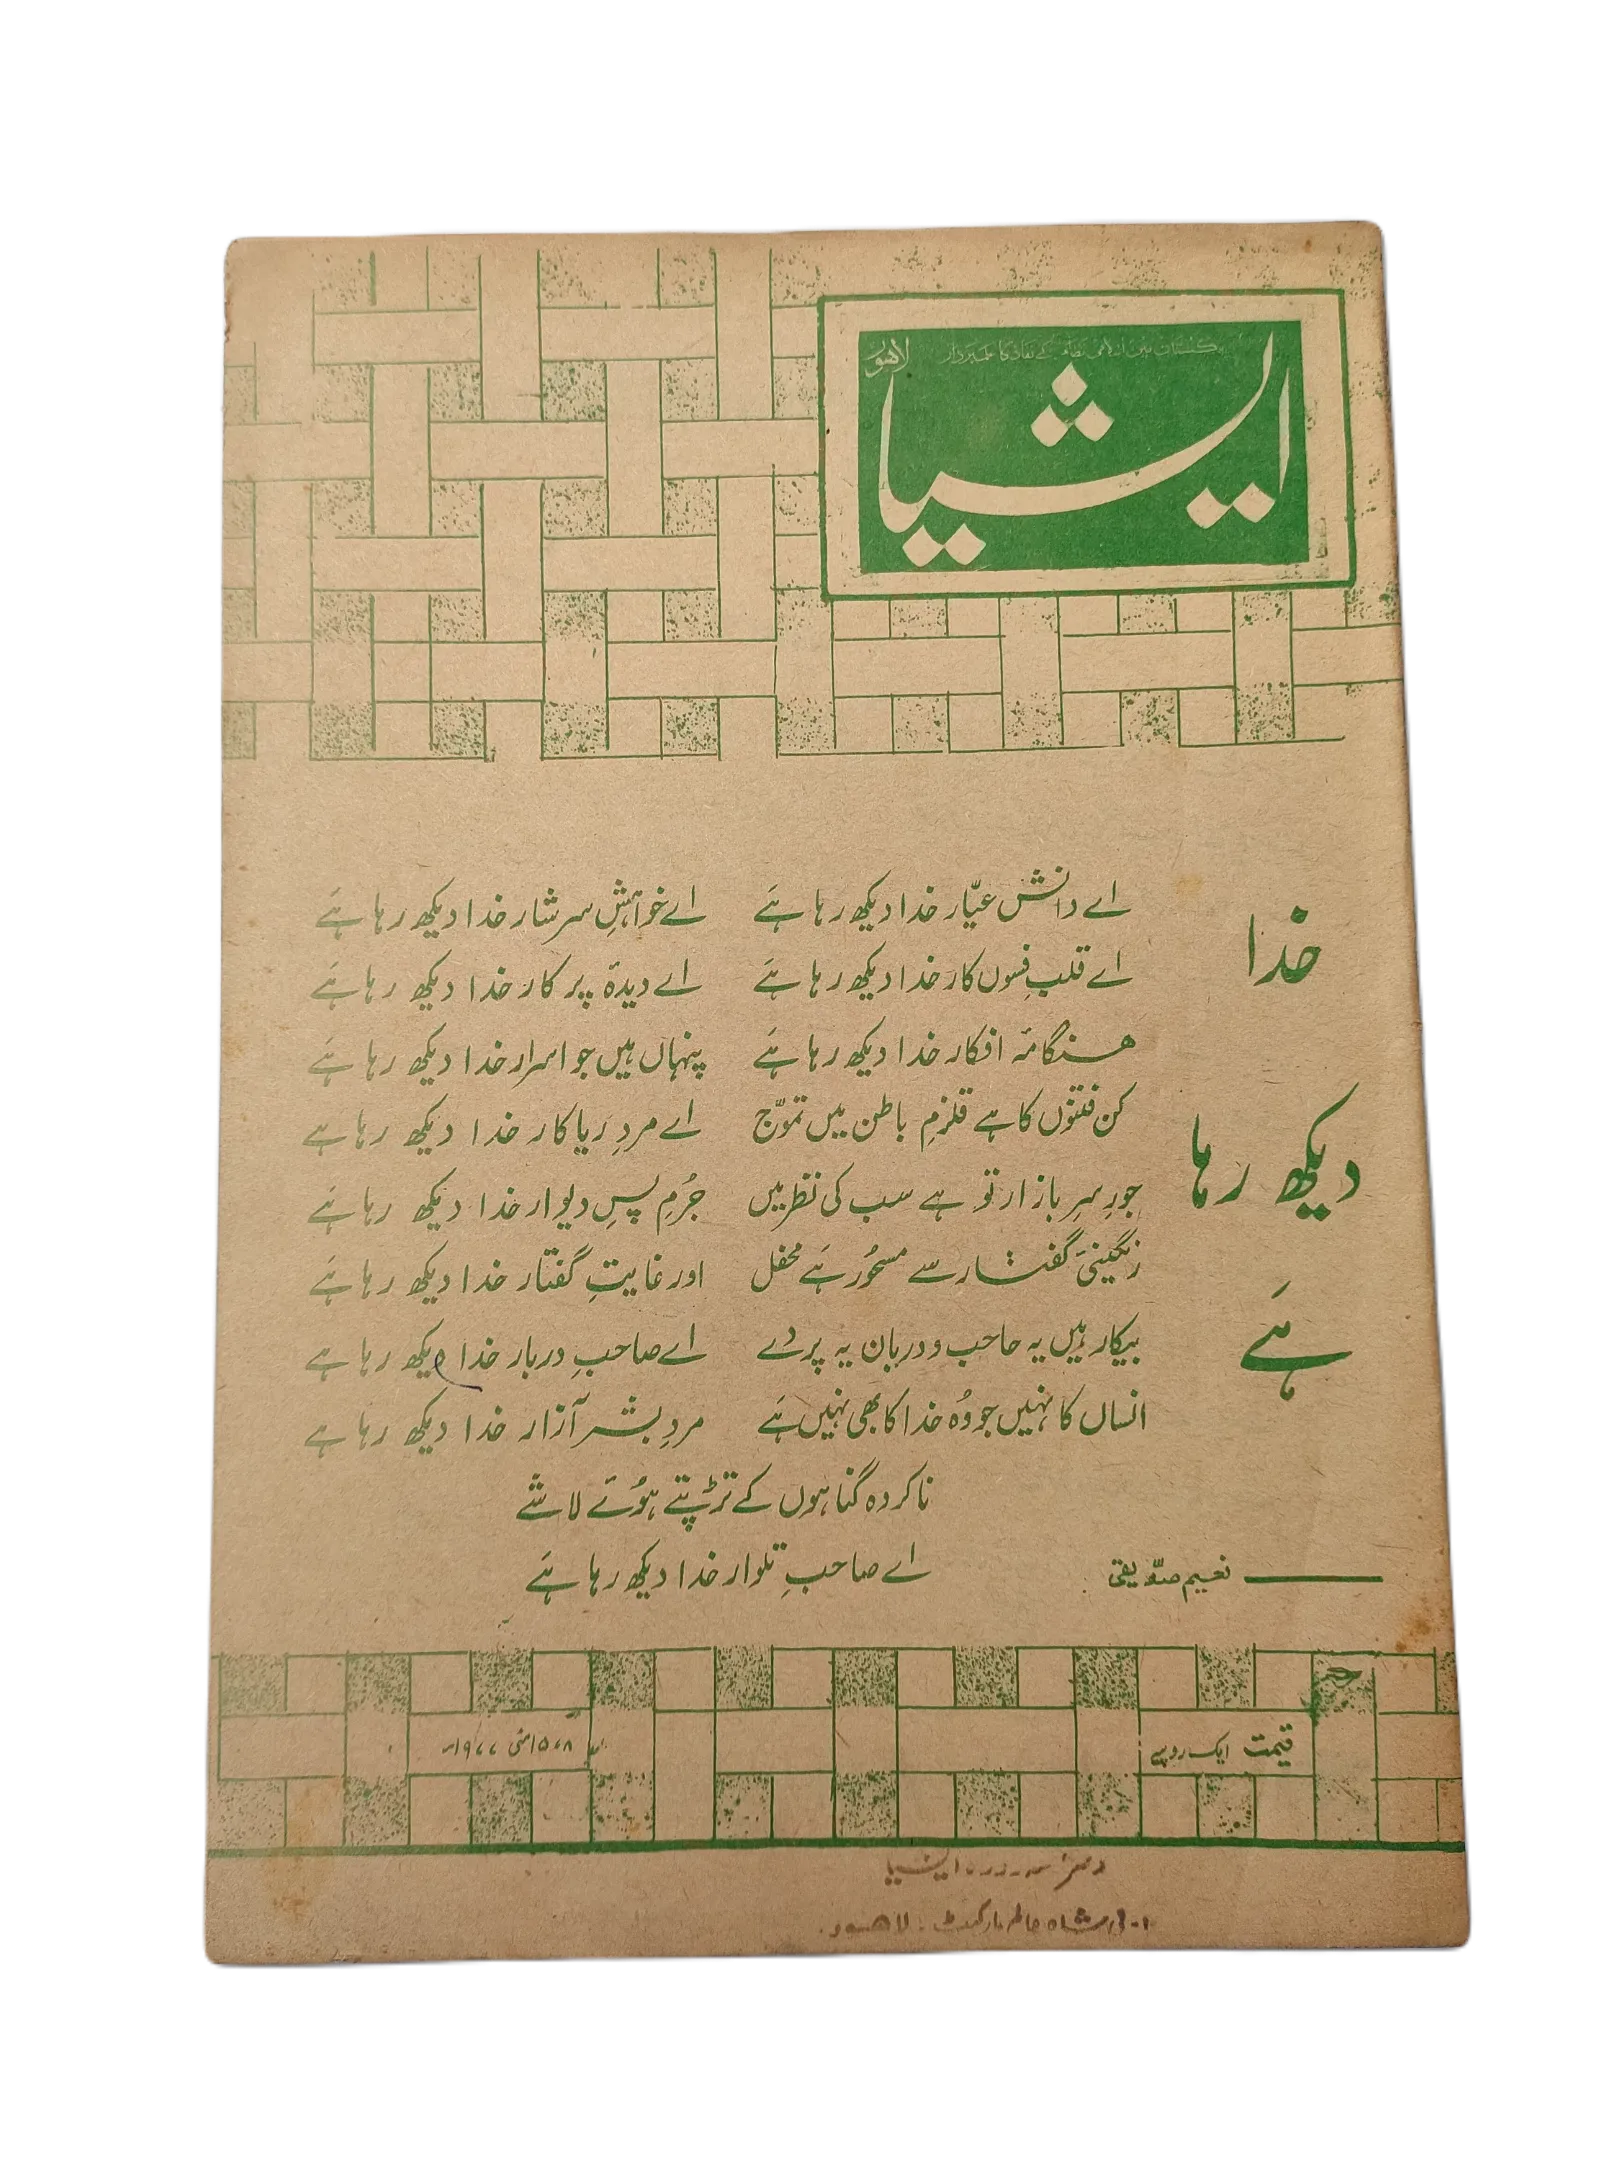 پاکستان میں اسلامی نظام کے نفاذ کا علمبردار
لاہور
ایشیا
خدا
دیکھ رہا
ہے
اے دانشِ عیّار خدا دیکھ رہا ہے اے خواہشِ سرشار خدا دیکھ رہا ہے
اے قلبِ فسوں کار خدا دیکھ رہا ہے اے دیدۂ پر کار خدا دیکھ رہا ہے
ہنگامۂ افکار خدا دیکھ رہا ہے پنہاں ہیں جو اسرار خدا دیکھ رہا ہے
کن فتنوں کا ہے قلزمِ باطن میں تموّج اے مردِ ریا کار خدا دیکھ رہا ہے
جورِ سرِ بازار تو ہے سب کی نظر میں جُرمِ پسِ دیوار خدا دیکھ رہا ہے
رنگینیٔ گفتار سے مسحُور ہے محفل اور غایتِ گفتار خدا دیکھ رہا ہے
بیکار ہیں یہ حاجب و دربان یہ پردے اے صاحبِ دربار خدا دیکھ رہا ہے
انساں کا نہیں جو وُہ خدا کا بھی نہیں ہے مردِ بشر آزار خدا دیکھ رہا ہے
ناکردہ گناہوں کے تڑپتے ہوُئے لاشے
اے صاحبِ تلوار خدا دیکھ رہا ہے
نعیم صدّیقی
قیمت ایک روپیہ
۱۵،۸ مئی ۱۹۷۷ء
دفتر سہ روزہ ایشیا
شاہ عالم مارکیٹ . لاہور